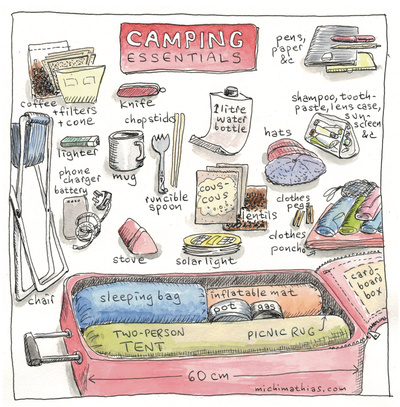 CAMPING
ESSENTIALS
pens,
paper
&c
coffee
+filters
+ cone
knife
chopsticks
1 litre
water
bottle
shampoo, tooth-
paste, lens case,
sun-
screen
&c
hats
lighter
mug
runcible
spoon
phone
charger
battery
cous-
cous
lentils
clothes
pegs
clothes
poncho
stove
solar light
chair
card-
board
box
sleeping bag
inflatable mat
pot
gas
TWO-PERSON
TENT
PICNIC RUG
60 cm
michimathias.com